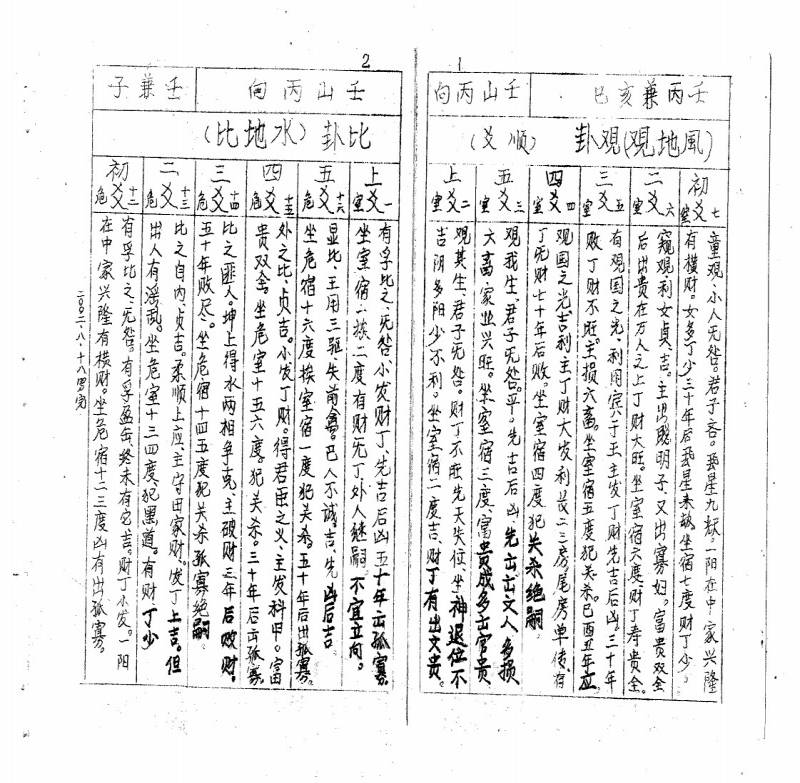 1
壬丙兼亥巳
壬山丙向
(风地观)观卦
(顺爻)
初爻
室七
童观、小人无咎。君子吝。
一阳在中家兴隆
有横财。女多丁少三十年后
坐宿七度财丁少。
二爻
室六
窥观、利女贞吉。主出聪明子、又出寡妇。富贵双全
后出贵在万人之上丁财大旺。坐室宿六度财丁寿贵全。
三爻
室五
有观国之光、利用宾于王、主发丁财先吉后凶、三十年
败丁财不旺。主损六畜。坐室宿五度犯关杀。巳酉丑年应
四爻
室四
观国之光吉利主丁财大发利长二三房尾房单传、有
丁无财七十年后败。坐室宿四度犯关杀绝嗣
五爻
室三
观我生、君子无咎。平。先吉后凶先出文人多损
六畜、家业兴旺。坐室宿三度、富贵成多出官贵
上爻
室二
观其生、君子无咎。财丁不旺先天失位、坐神退位不
吉阴多阳少不利。坐室宿二度吉、财丁有出文贵。
2
壬山丙向
壬兼子
比卦(水地比)
上爻
室一
有孚比之、无咎、小发财丁、先吉后凶五十年出孤寡。
坐室宿一二度有财无丁、外人继嗣不宜立向。
五爻
危十六
显比、王用三驱失前禽。邑人不诫。吉、先凶后吉
坐危宿十六度挨室宿一度犯关杀。五十年后出孤寡。
四爻
危十五
外之比、贞吉。小发丁财。得君臣之义、主发科甲。富
贵双全。坐危室十五六度。犯关杀。三十年后出孤寡
三爻
危十四
比之匪人。坤上得水两相争克、主破财三年后败财。
五十年败尽。坐危宿十四五度犯关杀孤寡绝嗣
二爻
危十三
比之自内、贞吉。柔顺上应、主守田家财。发丁上吉。但
出人有淫乱。坐危室十三四度、犯黑道。有财丁少
初爻
危十二
有孚比之、无咎。有孚盈缶、终未有它吉。财丁小发。一阳
在中家兴隆有横财。坐危宿十二三度凶有出孤寡。
二〇〇二、八、十八